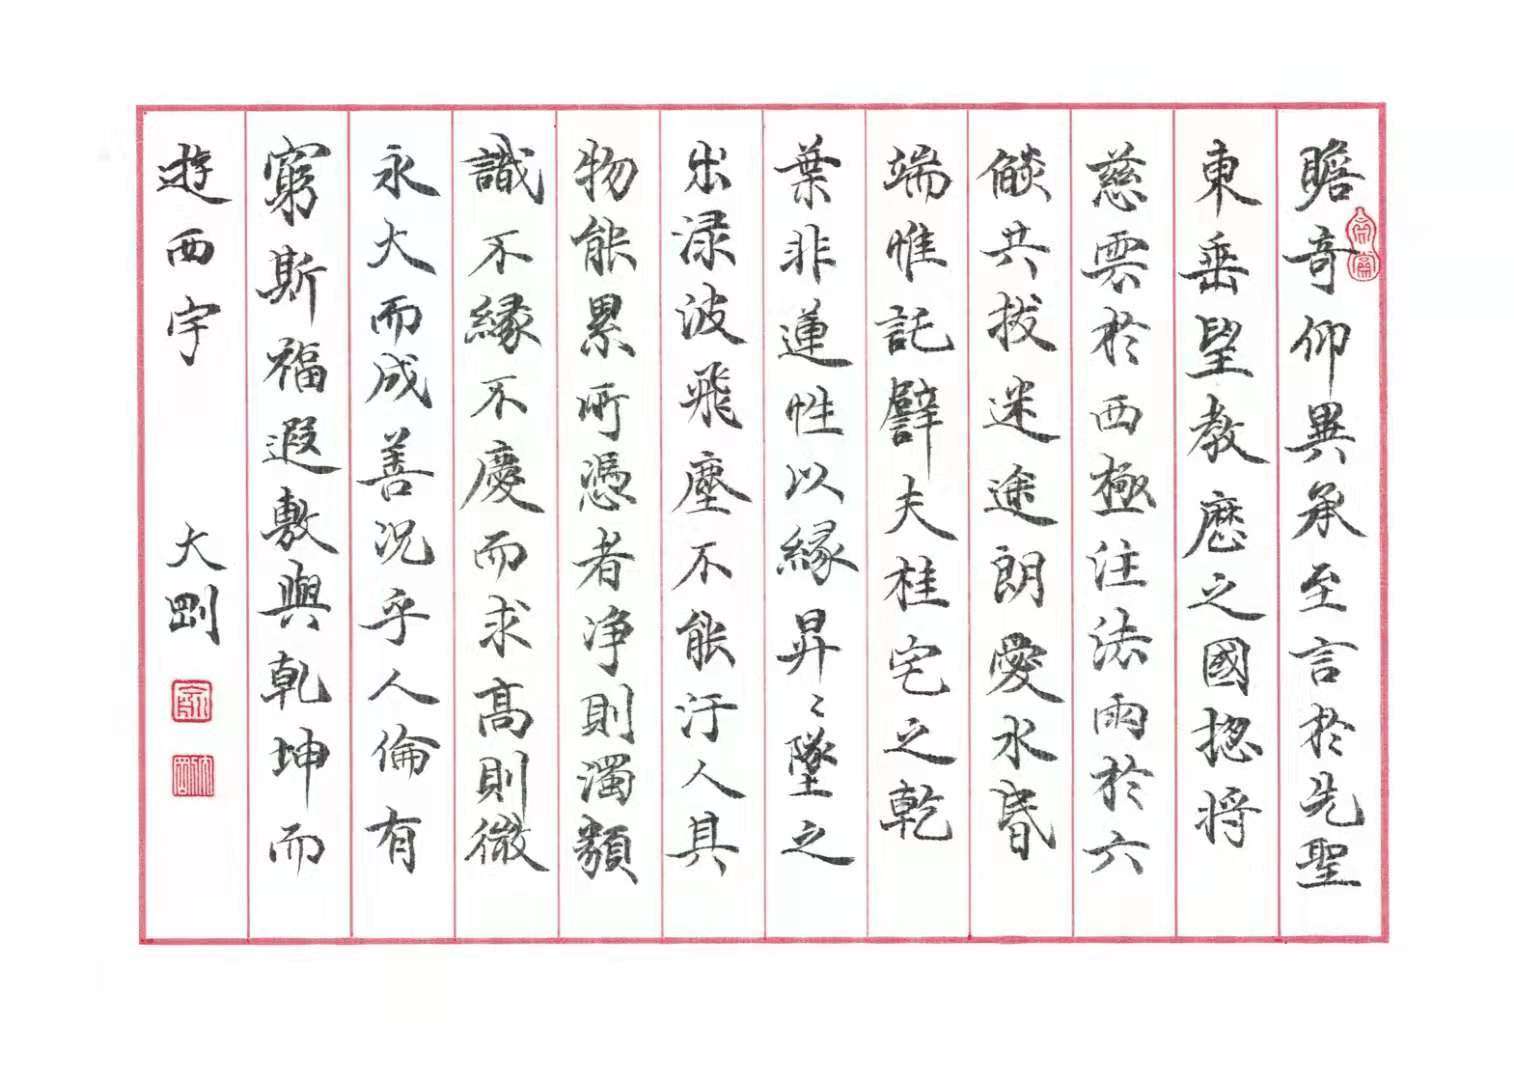 瞻奇仰異承至言於先聖
東垂望教歷之國揔将
慈雲於西極注法雨於六
燄共拔迷途朗愛水昏
端惟託譬夫桂宅之乾
葉非蓮性以緣昇〻墜之
出渌波飛塵不能汙人具
物能累所憑者净則濁類
識不緣不慶而求高則微
永大而成善况乎人倫有
窮斯福遐敷與乾坤而
遊西宇
大剛